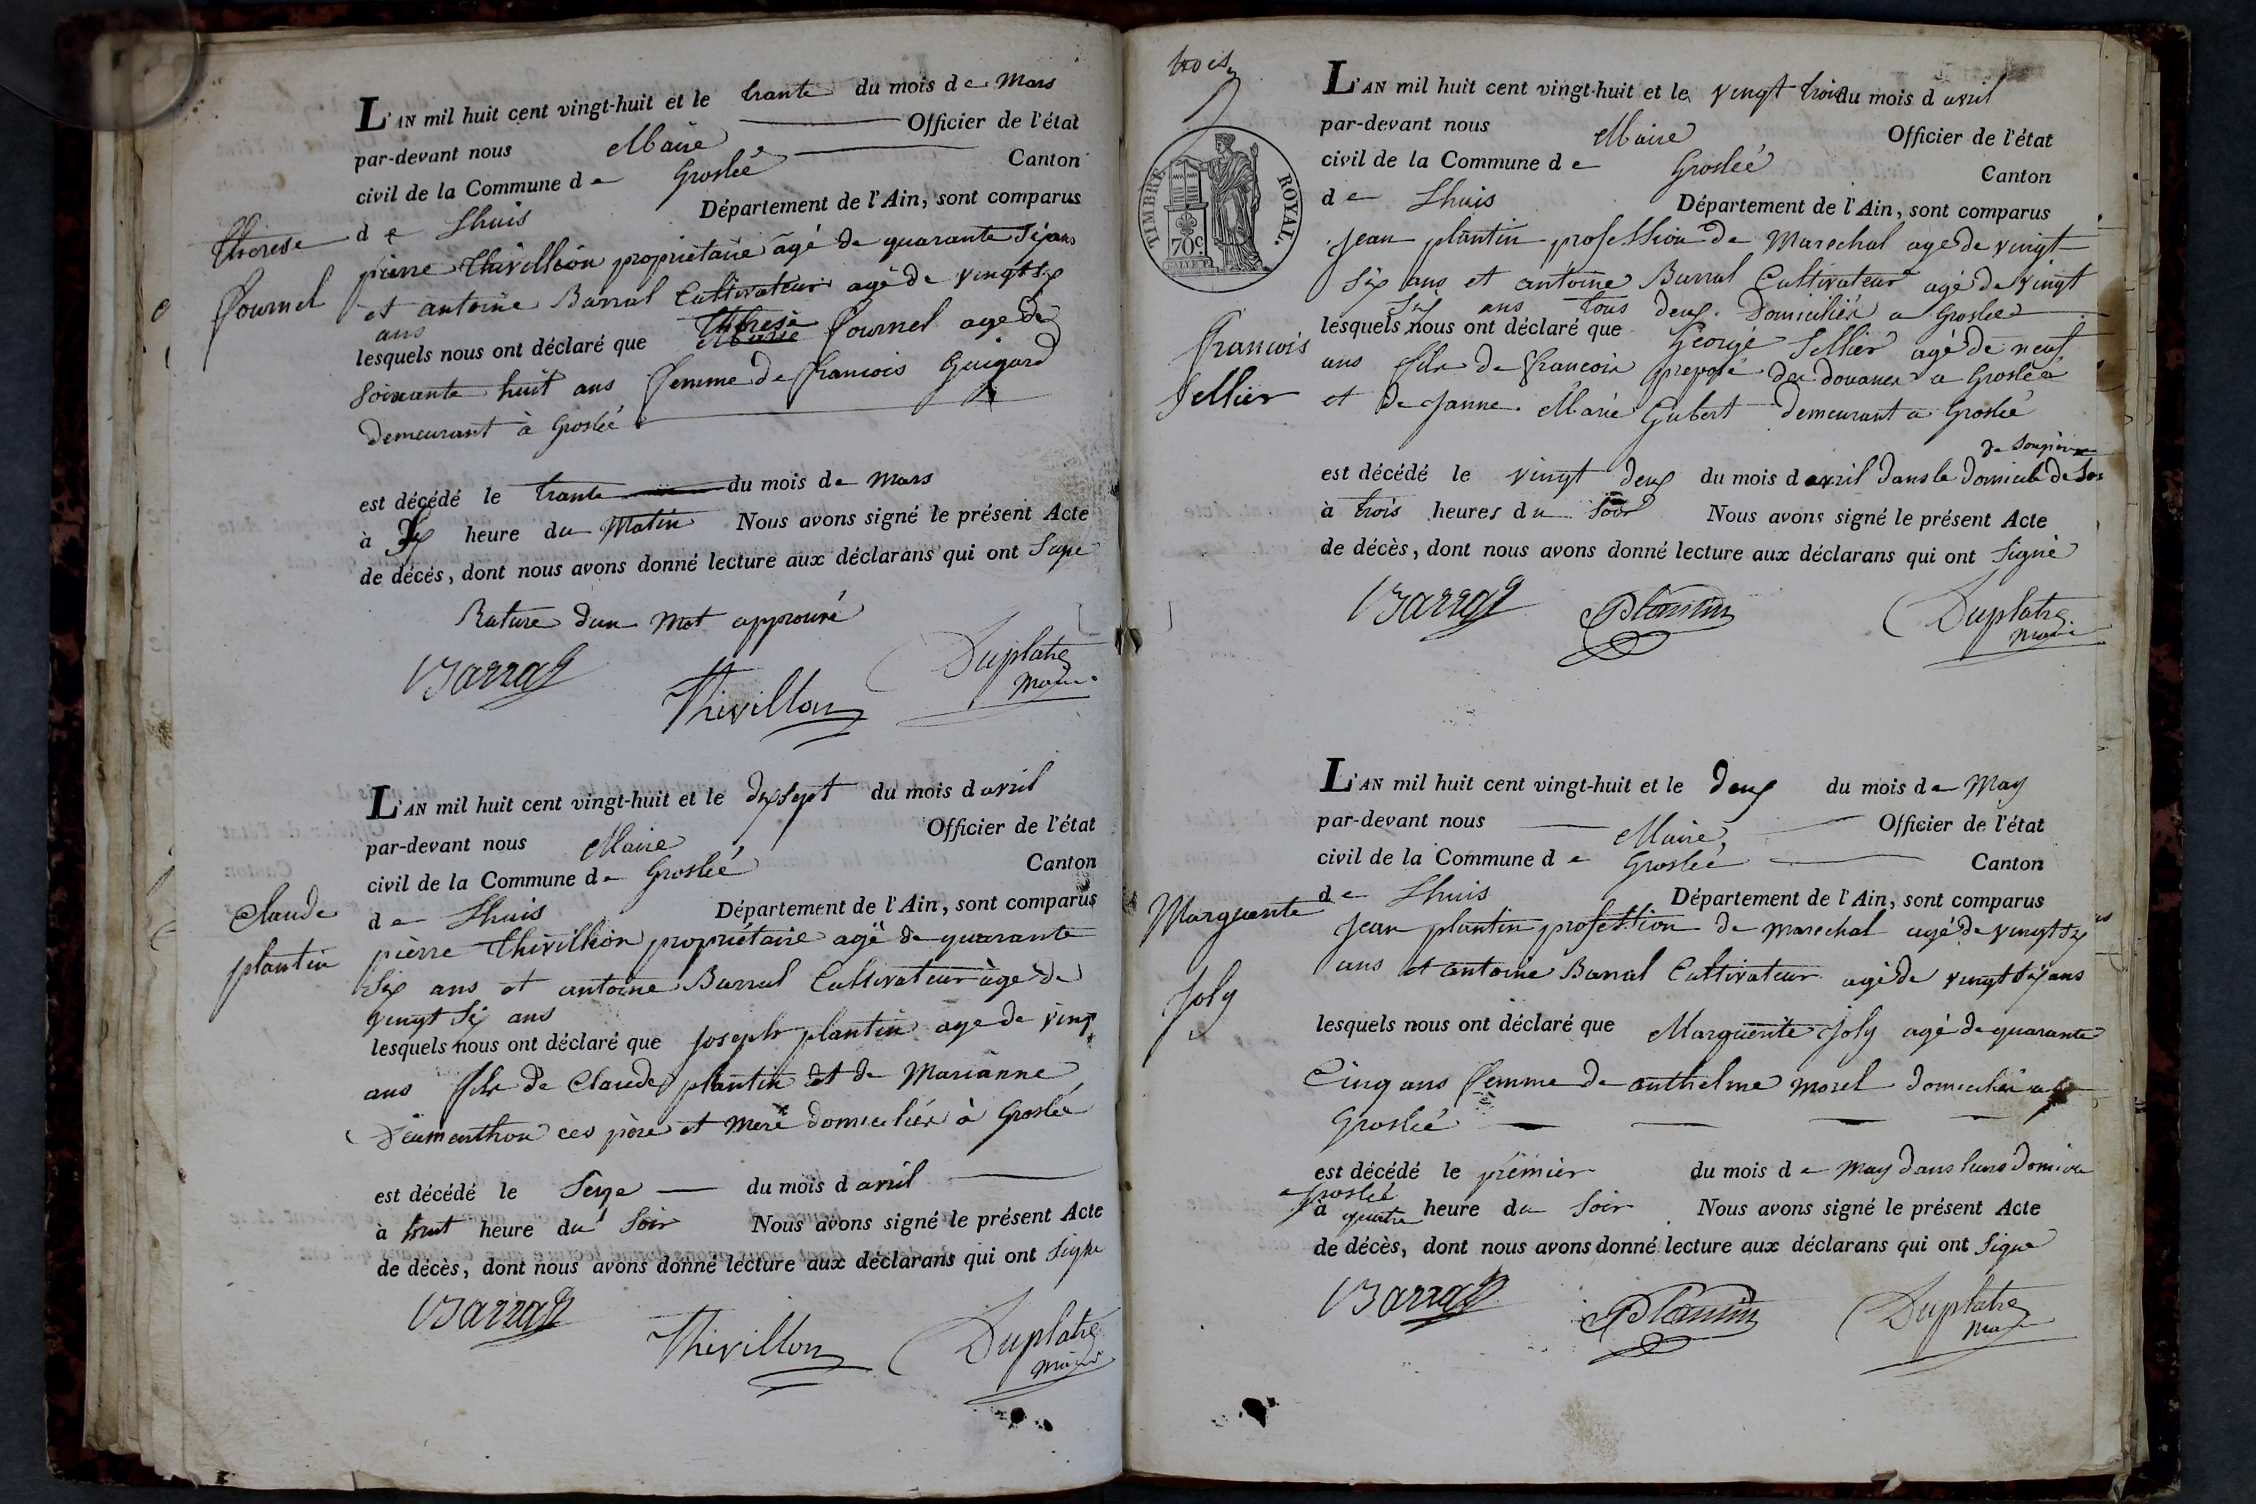 Therese
Fournel
L'AN mil huit cent vingt-huit et le trante du mois de Mars
par-devant nous Maire Officier de l'état
civil de la Commune de Groslée Canton
de Lhuis Département de l'Ain, sont comparus
pierre Thivillion propriétaire agé de quarante six ans
et antoine Barral Cultivateur agé de vingt six
ans
lesquels nous ont déclaré que Therese Marie Fournel age de
soixante huit ans femme de francois Guigard
demeurant à Groslée
est décédé le trante du mois de Mars
à heure du Matin Nous avons signé le présent Acte
de décès, dont nous avons donné lecture aux déclarans qui ont signe
Rature dun mot approuvé
Barral
Thivillon
Duplatre
maire
Claude
plantin
L'AN mil huit cent vingt-huit et le dixsept du mois d avril
par-devant nous Maire Officier de l'état
civil de la Commune de Groslée Canton
de Lhuis Département de l'Ain, sont comparus
pièrre Thivillion propriétaire agé de quarante
six ans et antoine Barral Cultivateur àge de
vingt six ans
lesquels nous ont déclaré que joseph plantin age de vingt
ans fils de Claude plantin et de Marianne
ces père et mere domiciliés à Groslée
est décédé le seize du mois d avril
à huit heure du soir Nous avons signé le présent Acte
de décès, dont nous avons donné lecture aux déclarans qui ont signe
Barral
Thivillon
Duplatre
maire
trois
TIMBRE ROYAL.
70c.
francois
Sellier
L'AN mil huit cent vingt-huit et le vingt trois du mois d avril
par-devant nous Maire Officier de l'état
civil de la Commune de Groslée Canton
de Lhuis Département de l'Ain, sont comparus
jean plantin profession de Marechal age de vingt
six ans et antoine Barral Cultivateur agé de vingt
six ans tous deux domiciliés a Groslée
lesquels nous ont déclaré que George Sellier agé de neuf
ans fils de francois preposé des douanes a Groslée
et de janne Marie Gubert demeurant a Groslée
de son père
est décédé le vingt deux du mois d avril dans le domicile de son
à trois heures du soir Nous avons signé le présent Acte
de décès, dont nous avons donné lecture aux déclarans qui ont signé
Barral
Plantin
Duplatre
maire
Marguerite
joly
L'AN mil huit cent vingt-huit et le deux du mois de May
par-devant nous Maire Officier de l'état
civil de la Commune de Groslée Canton
de Lhuis Département de l'Ain, sont comparus
jean plantin profession de marechal agé de vingt six
ans et antoine Barral Cultivateur agé de vingt six ans
lesquels nous ont déclaré que Marguerite joly agé de quarante
Cinq ans femme de anthelme morel domicilié a
Groslée
est décédé le premier du mois de may dans leurs domicile
a Groslée
à quatre heure du soir Nous avons signé le présent Acte
de décès, dont nous avons donné lecture aux déclarans qui ont signe
Barral
Plantin
Duplatre
maire